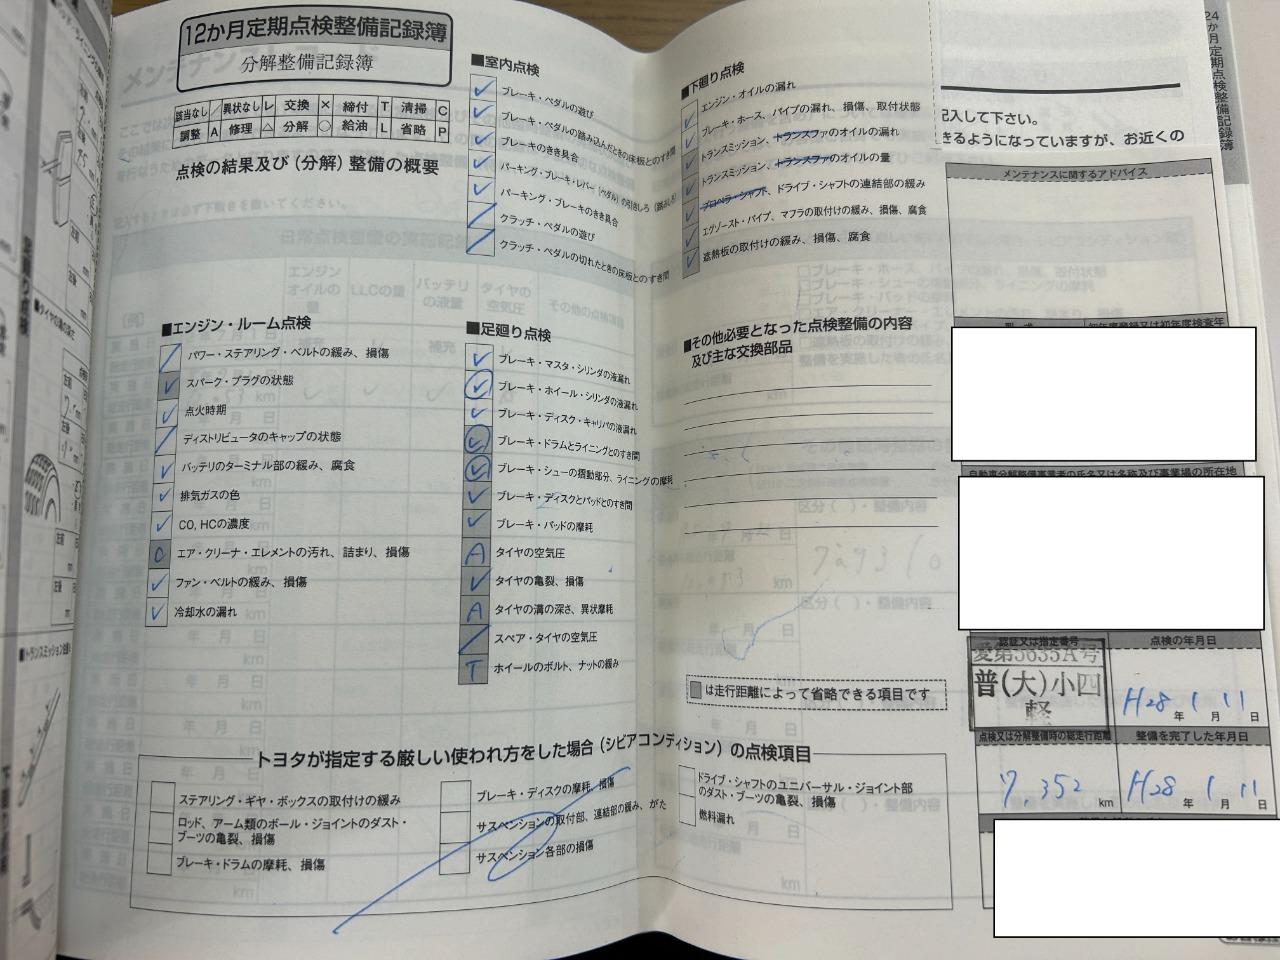 12か月定期点検整備記録簿
分解整備記録簿
該当なし / 異状なし レ 交換 × 締付 T 清掃 C
調整 A 修理 △ 分解 ○ 給油 L 省略 P
点検の結果及び(分解)整備の概要
■エンジン・ルーム点検
パワー・ステアリング・ベルトの緩み、損傷
スパーク・プラグの状態
点火時期
ディストリビュータのキャップの状態
バッテリのターミナル部の緩み、腐食
排気ガスの色
CO, HCの濃度
C エア・クリーナ・エレメントの汚れ、詰まり、損傷
ファン・ベルトの緩み、損傷
冷却水の漏れ
■室内点検
ブレーキ・ペダルの遊び
ブレーキ・ペダルの踏み込んだときの床板とのすき間
ブレーキのきき具合
パーキング・ブレーキ・レバー(ペダル)の引きしろ(踏みしろ)
パーキング・ブレーキのきき具合
クラッチ・ペダルの遊び
クラッチ・ペダルの切れたときの床板とのすき間
■足廻り点検
ブレーキ・マスタ・シリンダの液漏れ
ブレーキ・ホイール・シリンダの液漏れ
ブレーキ・ディスク・キャリパの液漏れ
ブレーキ・ドラムとライニングとのすき間
ブレーキ・シューの摺動部分、ライニングの摩耗
ブレーキ・ディスクとパッドとのすき間
ブレーキ・パッドの摩耗
A タイヤの空気圧
タイヤの亀裂、損傷
A タイヤの溝の深さ、異状摩耗
スペア・タイヤの空気圧
T ホイールのボルト、ナットの緩み
■下廻り点検
エンジン・オイルの漏れ
ブレーキ・ホース、パイプの漏れ、損傷、取付状態
トランスミッション、トランスファのオイルの漏れ
トランスミッション、トランスファのオイルの量
プロペラ・シャフト、ドライブ・シャフトの連結部の緩み
エグゾースト・パイプ、マフラの取付けの緩み、損傷、腐食
遮熱板の取付けの緩み、損傷、腐食
■その他必要となった点検整備の内容
及び主な交換部品
は走行距離によって省略できる項目です
トヨタが指定する厳しい使われ方をした場合(シビアコンディション)の点検項目
ステアリング・ギヤ・ボックスの取付けの緩み
ロッド、アーム類のボール・ジョイントのダスト・
ブーツの亀裂、損傷
ブレーキ・ドラムの摩耗、損傷
ブレーキ・ディスクの摩耗、損傷
サスペンションの取付部、連結部の緩み、がた
サスペンション各部の損傷
ドライブ・シャフトのユニバーサル・ジョイント部
のダスト・ブーツの亀裂、損傷
燃料漏れ
24か月定期点検整備記録簿
記入して下さい。
きるようになっていますが、お近くの
メンテナンスに関するアドバイス
型式 初年度登録又は初年度検査年
自動車分解整備事業者の氏名又は名称及び事業場の所在地
認証又は指定番号 点検の年月日
愛第5635A号
普(大)小四
軽
H28年1月11日
点検又は分解整備時の総走行距離 整備を完了した年月日
7,352 km H28年1月11日